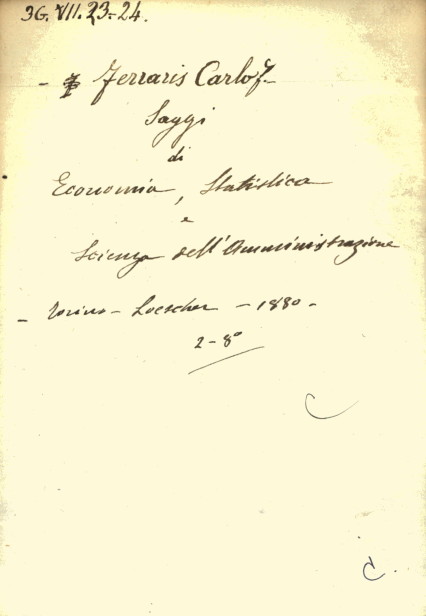 36. VII. 23-24.
- Ferraris Carlo F.
Saggi
di
Economia, Statistica
e
Scienza dell'Amministrazione
- Torino - Loescher - 1880 -
2 - 8°
C
C.